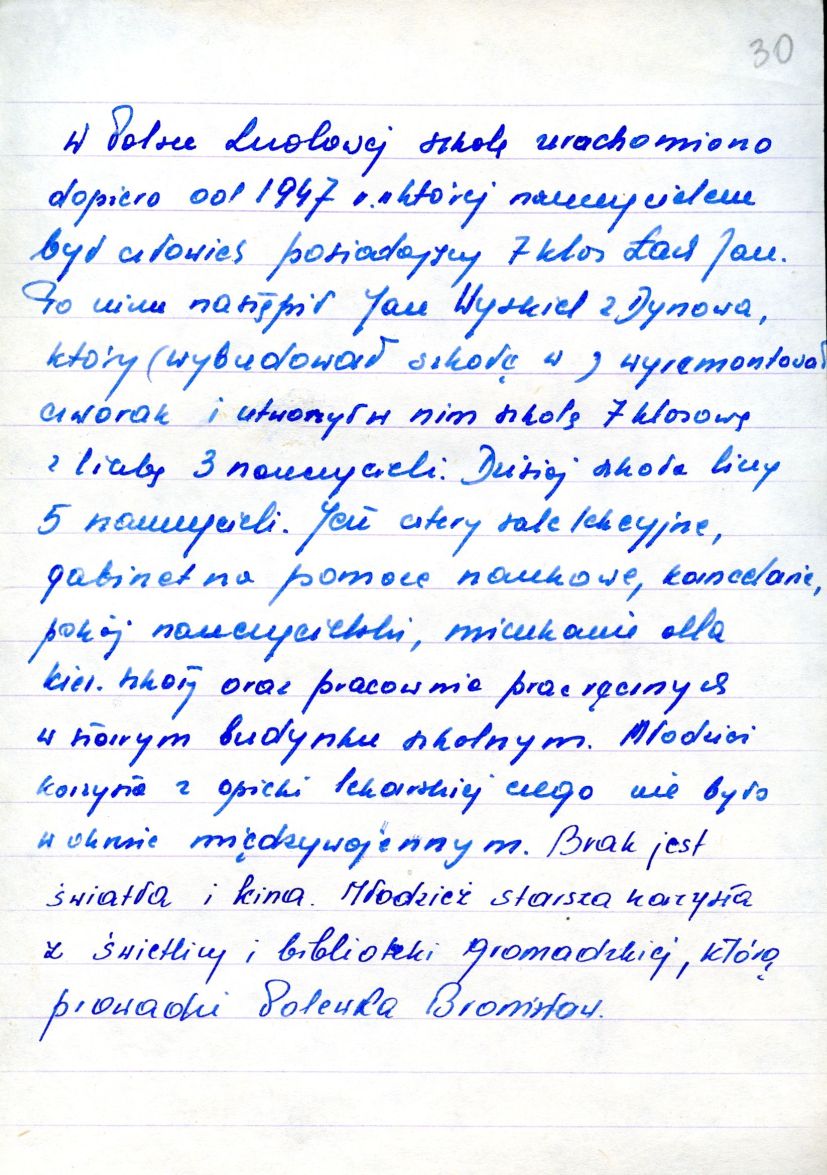 30
W Polsce Ludowej szkołę uruchomiono
dopiero od 1947 r. w której nauczycielem
był człowiek posiadający 7 klas Jan.
Po nim nastąpił Jan Wyskiel z Dynowa,
który (wybudował szkołę w ) wyremontował
czworak i utworzył w nim szkołę 7 klasową
z liczbą 3 nauczycieli. Dzisiaj szkoła liczy
5 nauczycieli. Jest cztery sale lekcyjne,
gabinet na pomoce naukowe, kancelarie,
pokój nauczycielski, mieszkanie dla
kier. szkoły oraz pracownia prac ręcznych
w starym budynku szkolnym. Młodzież
korzysta z opieki lekarskiej czego nie było
w okresie międzywojennym. Brak jest
światła i kina. Młodzież starsza korzysta
z świetlicy i biblioteki gromadzkiej, którą
prowadzi Polewka Bronisław.